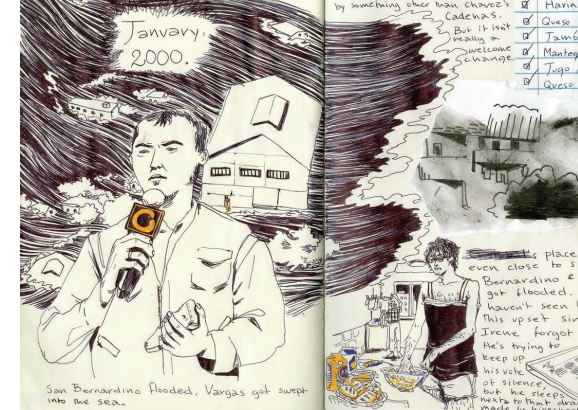 January.
2000.
San Bernardino flooded, Vargas got swept
into the sea.
by something other than Chavez's
Cadenas.
But it isn't
really a
welcome
change.
Harin
Queso
Jamó
Manteq
Jugo
Queso
's place
even close to s
Bernardino &
got flooded.
haven't seen
This upset sin
Irene forgot
He's trying to
keep up
his vote
of silence,
but he sleeps
next to that